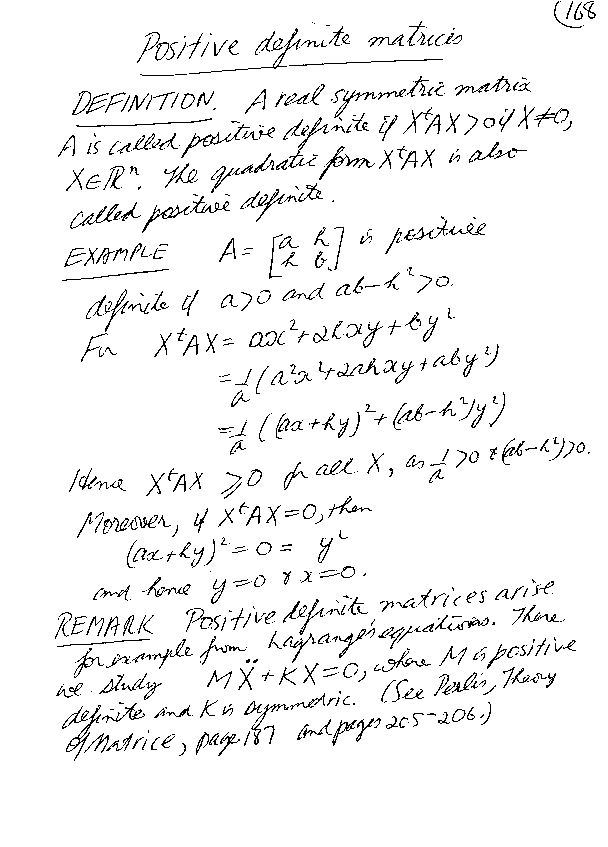 168
Positive definite matrices
DEFINITION. A real symmetric matrix
A is called positive definite if XᵗAX>0 if X≠0,
X∈ℝⁿ. The quadratic form XᵗAX is also
called positive definite.
EXAMPLE A = [a h] is positive
[h b]
definite if a>0 and ab-h²>0.
For XᵗAX = ax²+2hxy+by²
= 1/a (a²x²+2ahxy+aby²)
= 1/a ((ax+hy)²+(ab-h²)y²)
Hence XᵗAX ≥0 for all X, as 1/a >0 & (ab-h²)>0.
Moreover, if XᵗAX=0, then
(ax+hy)²=0= y²
and hence y=0 & x=0.
REMARK Positive definite matrices arise
for example from Lagrange's equations. There
we study MẌ+KX=0, where M is positive
definite and K is symmetric. (See Perlis, Theory
of Matrice, page 187 and pages 205-206.)